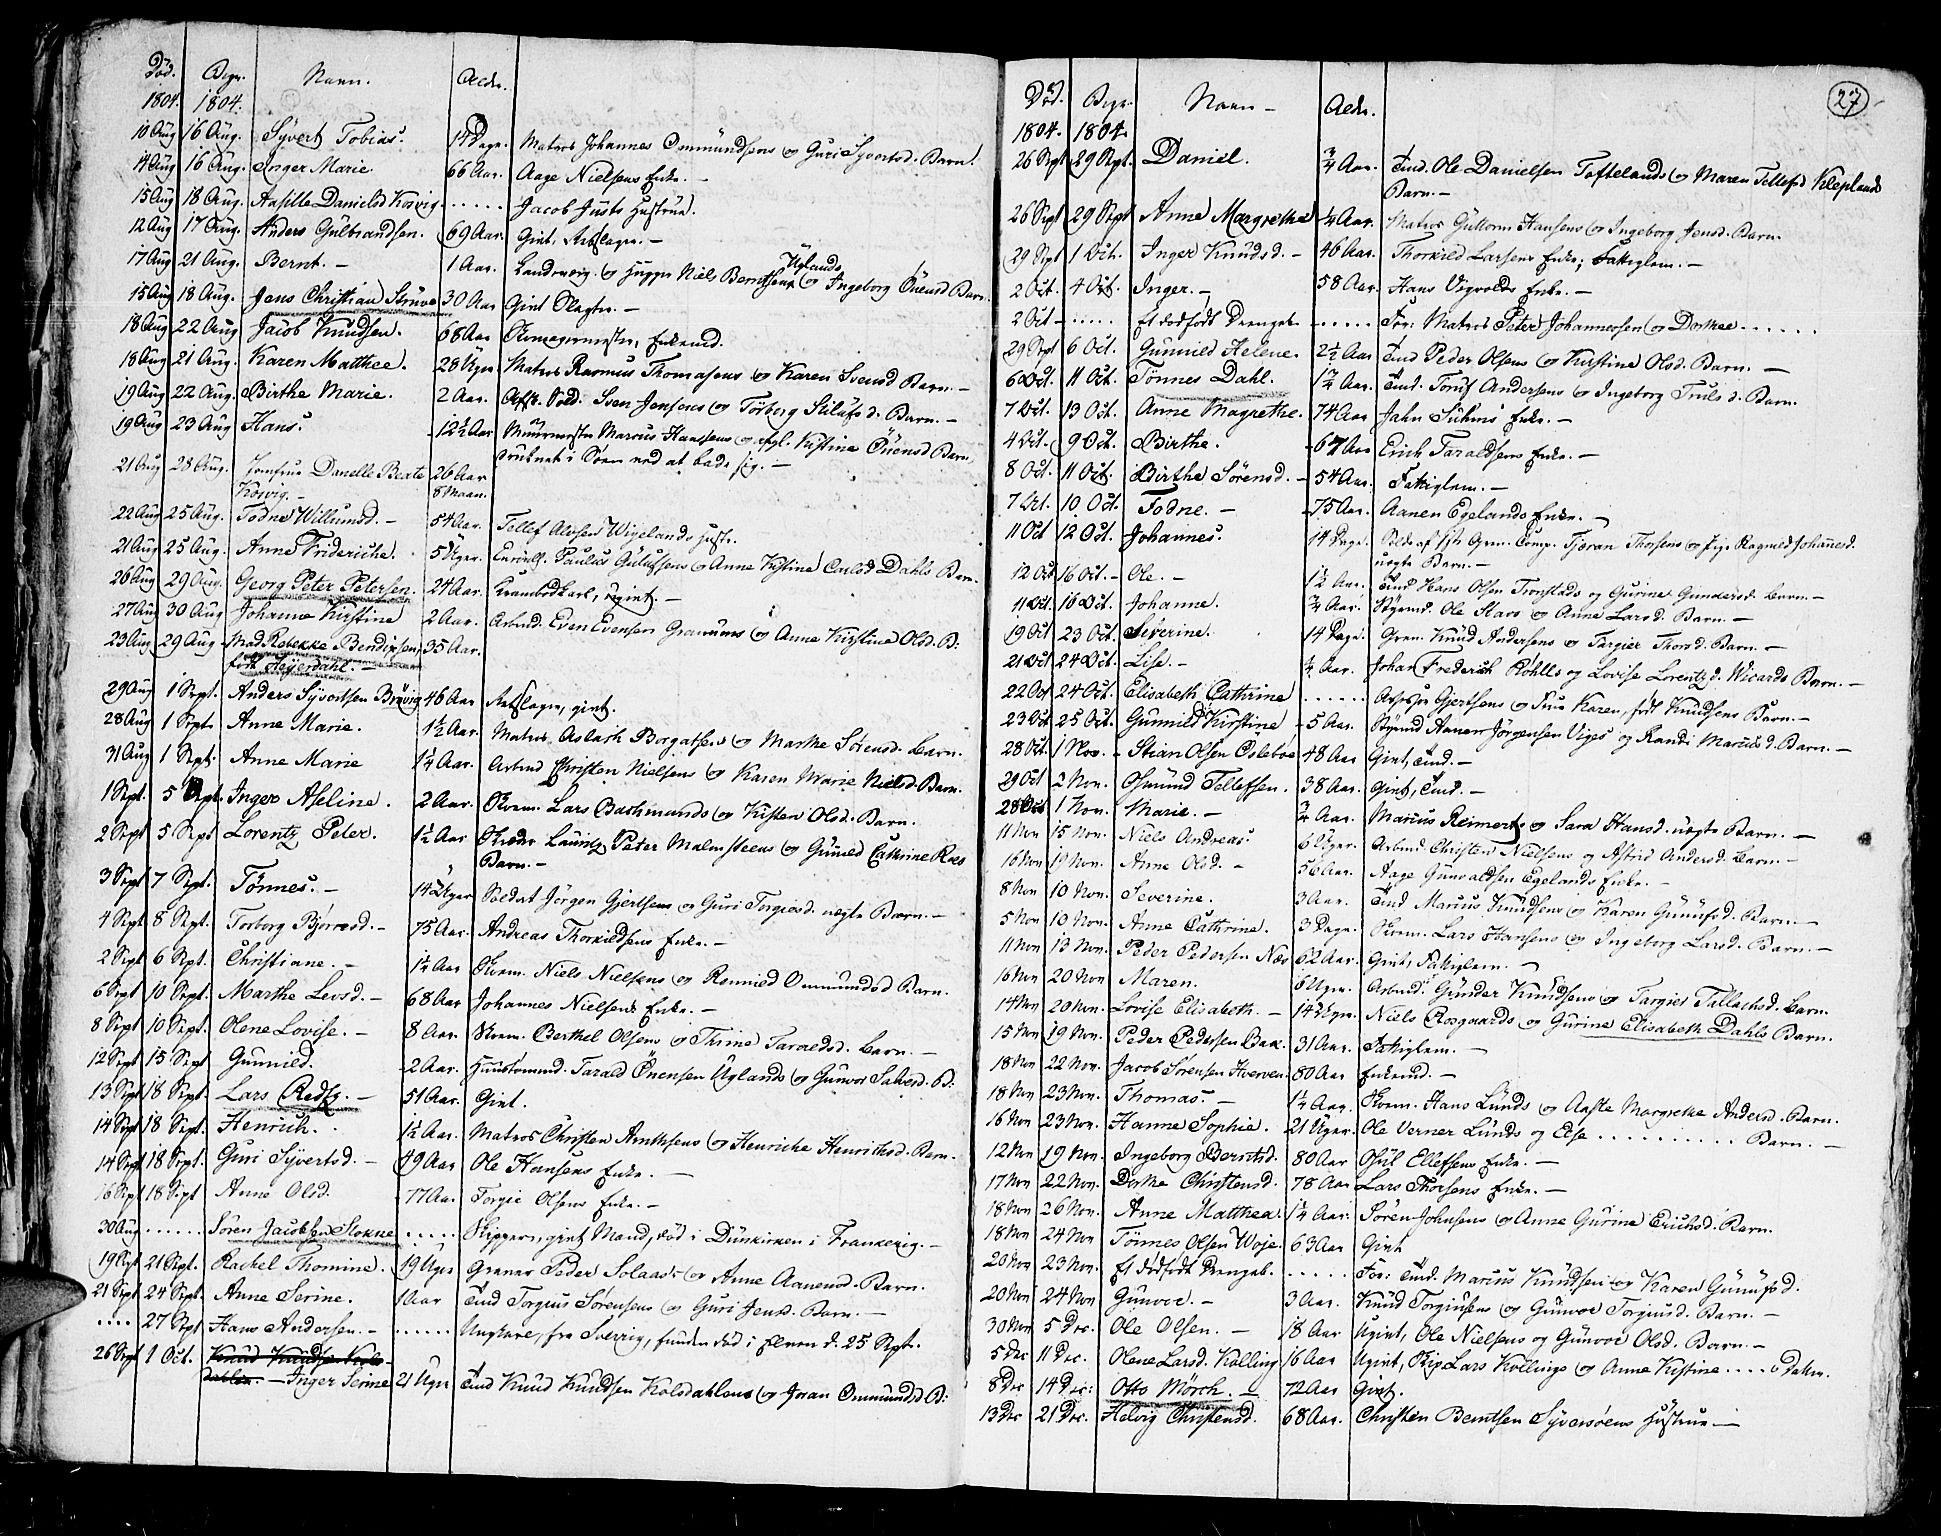 Død. Begr. Navn. Aeldr.
1804. 1804.
10 Aug 16 Aug. Syvert Tobias. 14 Dage. Matros Johannes Ommundsens og Guri Syvertsd. Barn.
14 Aug 16 Aug. Inger Marie. 66 Aar. Aage Nielsens Enke. —
15 Aug 18 Aug. Aasille Danielsd Kosvig ..... Jacob Justs Hustrue.
12 Aug 17 Aug. Anders Gulbrandsen. 69 Aar. Givt, —
17 Aug 21 Aug. Bernt. — 1 Aar. Niels Berntsens Uglands og Ingeborg Önensd Barn.
15 Aug 18 Aug. Jens Christian Strüve 30 Aar Givt —
18 Aug 22 Aug Jacob Knudsen. 68 Aar Enkemd.
18 Aug 21 Aug. Karen Matthee. 28 Uger Matros Rasmus Thomasens og Karen Svensd Barn. —
19 Aug 22 Aug. Birthe Marie. 2 Aar. Afsk. Sold. Sven Jensens og Torborg Barn. —
19 Aug 23 Aug Hans. 12½ Aar Muurmester Marcus Hansens og Kistine Önensd Barn,
druknet i Søen ved at bade sig. —
21 Aug 28 Aug. Jomfrue Danelle Beate 26 Aar
Kosvig. — 8 Maan.
22 Aug 25 Aug. Todne Willumsd. — 54 Aar. Tellef Alvsen Wigelands Hustr.
21 Aug 25 Aug. Anne Frideriche. 5 Uger. Paulus og Anne Kistine Carlsd Dahls Barn.
26 Aug 29 Aug. Georg Peter Petersen. 24 Aar. Krambodkarl, ugivt. —
27 Aug 30 Aug Johanne Kirstine 2 Aar. Arbmd. Even Evensen Gramums og Anne Kirstine Olsd. B:
23 Aug 29 Aug Mad Rebekke Bendixsen, 35 Aar.
født Heyerdahl. —
29 Aug 1 Sept. Anders Syvertsen Brövig 46 Aar givt.
28 Aug 1 Sept. Anne Marie. 1½ Aar. Matros Aslach Borgatsens og Marthe Sørensd. Barn.
31 Aug 1 Sept. Anne Marie 1¼ Aar. Arbmd Christen Nielsens og Karen Marie Nielsd. Barn.
1 Sept. 5 Sept. Inger Aseline. 2 Aar. Lars Bachmands og Kirsten Olsd. Barn.
2 Sept 5 Sept Lorentz Peter. 1½ Aar Lauritz Peter Malmsteens og Gunild Cathrine Roes
Barn. —
3 Sept 7 Sept. Tönnes. — 14 Uger Soldat Jörgen Gjertsens og Guri Torgiesd. uægte Barn. —
4 Sept 8 Sept. Torborg Björnsd. — 75 Aar. Andreas Thorkildsens Enke. —
2 Sept 6 Sept. Christiane. — 1¼ Aar Niels Nielsens og Ronnild Ommundsd Barn.
6 Sept 10 Sept. Marthe Levsd. — 68 Aar Johannes Nielsens Enke. —
8 Sept 10 Sept. Olene Lovise. — 8 Aar. Berthel Olsens og Thrine Taraldsd. Barn. —
12 Sept 15 Sept Gunnild. 2 Aar. Huustømmd. Tarald Önensen Uglands og Gunvor Salvesd. B:
13 Sept 18 Sept. Lars Redtz. — 51 Aar. Givt.
14 Sept 18 Sept. Henrich. 1½ Aar. Matros Christen Arnthsens og Henriche Henrichsd. Barn.
14 Sept 18 Sept. Guri Syvertsd. — 49 Aar Ole Hansens Enke. —
16 Sept 18 Sept Anne Olsd. 77 Aar. Torgie Olsens Enke. —
30 Aug ..... Sören Jacobsen Slokne ..... Skipper, givt Mand, død i Dünkirken i Frankerig. —
19 Sept 21 Sept. Rachel Thomine. 19 Uger Peder Solaas og Anne Aanensd. Barn.
21 Sept 24 Sept. Anne Serine. 1 Aar Tmd Torgius Sørensens og Guri Jensd. Barn. —
.... 27 Sept Hans Andersen. — ...... Ungkarl, fra Sverrig, funden død i Elven d. 25 Sept.
26 Sept 1 Oct. Knud Knudsen Kols-
dahlen. — Inger Serine 21 Uger Tmd Knud Knudsen Kolsdahlens og Joran Ommundsd B:
27
Død. Begr. Navn — Aeldr.
1804. 1804.
26 Sept 29 Sept. Daniel. ¾ Aar. Tmd. Ole Danielsen Toftelands og Maren Tellefsd Kleplands
Barn. —
26 Sept 29 Sept Anne Margrethe ¼ Aar. Matros Guttorm Hansens og Ingeborg Jensd. Barn.
29 Sept 1 Oct. Inger Knudsd. — 46 Aar. Thorkild Larsens Enke, Fattiglem. —
2 Oct. 4 Oct. Inger. — 58 Aar. Hans Vigvolds Enke. —
2 Oct — ..... Et dødfødt Drengeb. ..... For: Matros Peter Johannessen og Dorthee ......
29 Sept 6 Oct. Gunnild Helene. 2½ Aar Tmd Peder Olsens og Kirstine Olsd. Barn. —
6 Oct. 11 Oct. Tönnes Dahl. 1¾ Aar. Tmd. Andersens og Ingeborg Trulsd. Barn.
7 Oct. 13 Oct. Anne Magrethe. 74 Aar Jahn Suhms Enke. —
4 Oct. 9 Oct. Birthe. — 67 Aar Erich Taraldsens Enke. —
8 Oct. 11 Oct. Birthe Sörensd. — 54 Aar. Fattiglem. —
7 Oct. 10 Oct. Todne. — 75 Aar. Aanen Egelands Enke. —
11 Oct 12 Oct. Johannes. 14 Dage. Sold: af 1ste Gren. Comp. Tjøran Thorsens og Pige Ragnild Johannesd.
uægte Barn. —
12 Oct 16 Oct. — Ole. — 1½ Aar. Tmd Hans Olsen Tronstads og Gurine Gundersd. Barn. —
11 Oct. 16 Oct. Johanne. ¾ Aar. Ole Haas og Anne Larsd. Barn. —
19 Oct 23 Oct. Severine. 14 Dage. Gren. Knud Andersens og Targier Thorsd. Barn. —
21 Oct 24 Oct. Lise. — ¼ Aar. Johan Frederich Rohlls og Lovise Lorentzd. Wicards Barn. —
22 Oct 24 Oct. Elisabeth Cathrine ..... Gjertsens og Frue Karen, født Knudsens Barn. —
23 Oct 25 Oct. Gunnild Kirstine 5 Aar. Aanen Jörgensen Viges og Randi Marcusd. Barn. —
28 Oct. 1 Nov. — Stian Olsen Osleboe 48 Aar Givt, Tmd. —
29 Oct 2 Nov. Osmund Tellefsen. 38 Aar. Givt, Tmd. —
28 Oct 1 Nov. Marie. — ¾ Aar. Marcus Reimerts og Sara Hansd. uægte Barn. —
11 Nov 15 Nov. Niels Andreas. 6 Uger. Arbmd. Christen Nielsens og Astrid Andersd. Barn. —
16 Nov 19 Nov. Anne Olsd. — 56 Aar. Aage Gunvaldsen Egelands Enke. —
8 Nov 10 Nov. Severine. 3 Aar. Tmd Marcus Knudsens og Karen Gunnufsd. Barn. —
5 Nov 10 Nov. Anne Cathrine. 3 Dage. Lars Hansens og Ingeborg Larsd. Barn. —
11 Nov 13 Nov. Peder Pedersen Næs 62 Aar. Givt, Fattiglem. —
16 Nov 20 Nov Maren. 6 Uger. Arbmd. Gunder Knudsens og Targier Tallachsd. Barn.
14 Nov 20 Nov. Lovise Elisabeth. — 14 Uger. Niels Rosgaards og Gurine Elisabeth Dahls Barn.
15 Nov 19 Nov. Peder Pedersen Bak. 31 Aar. Fattiglem. —
18 Nov 22 Nov. Jacob Sørensen Hverven. 80 Aar Enkemd. —
18 Nov 23 Nov. Thomas. — 1¼ Aar. Hans Lunds og Aaste Margrethe Andersd. Barn.
16 Nov 23 Nov. Hanne Sophie. 21 Uger. Ole Verner Lunds og Else .......... Barn. —
12 Nov 19 Nov. Ingeborg Berntsd. 80 Aar Osul Ellefsens Enke. —
17 Nov 22 Nov. Dorthe Christensd. 78 Aar Lars Thorsens Enke. —
18 Nov 26 Nov. Anne Matthea. 1¼ Aar. Sören Johnsens og Anne Gurine Erichsd. Barn.
18 Nov 24 Nov Tönnes Olsen Woje. 63 Aar Givt
20 Nov 23 Nov. Et dødfødt Drengeb. ..... For: Tmd. Marcus Knudsen og Karen Gunnufsd.
20 Nov 24 Nov Gunvor. — 3 Aar. Knud Torgiusens og Gunvor Torgiusd. Barn. —
30 Nov 5 Dec. Ole Olsen. — 18 Aar Ugivt, Ole Nielsens og Gunvor Olsd. Barn. —
5 Dec 11 Dec. Olene Larsd. Kolling 16 Aar Ugivt, Skip. Lars Kollings og Anne Kistine .... Datter.
8 Dec 14 Dec: Otto Mörch. — 72 Aar Givt.
13 Dec 21 Dec. Helvig Christensd. 68 Aar. Christen Berntsen Syversøens Hustrue —